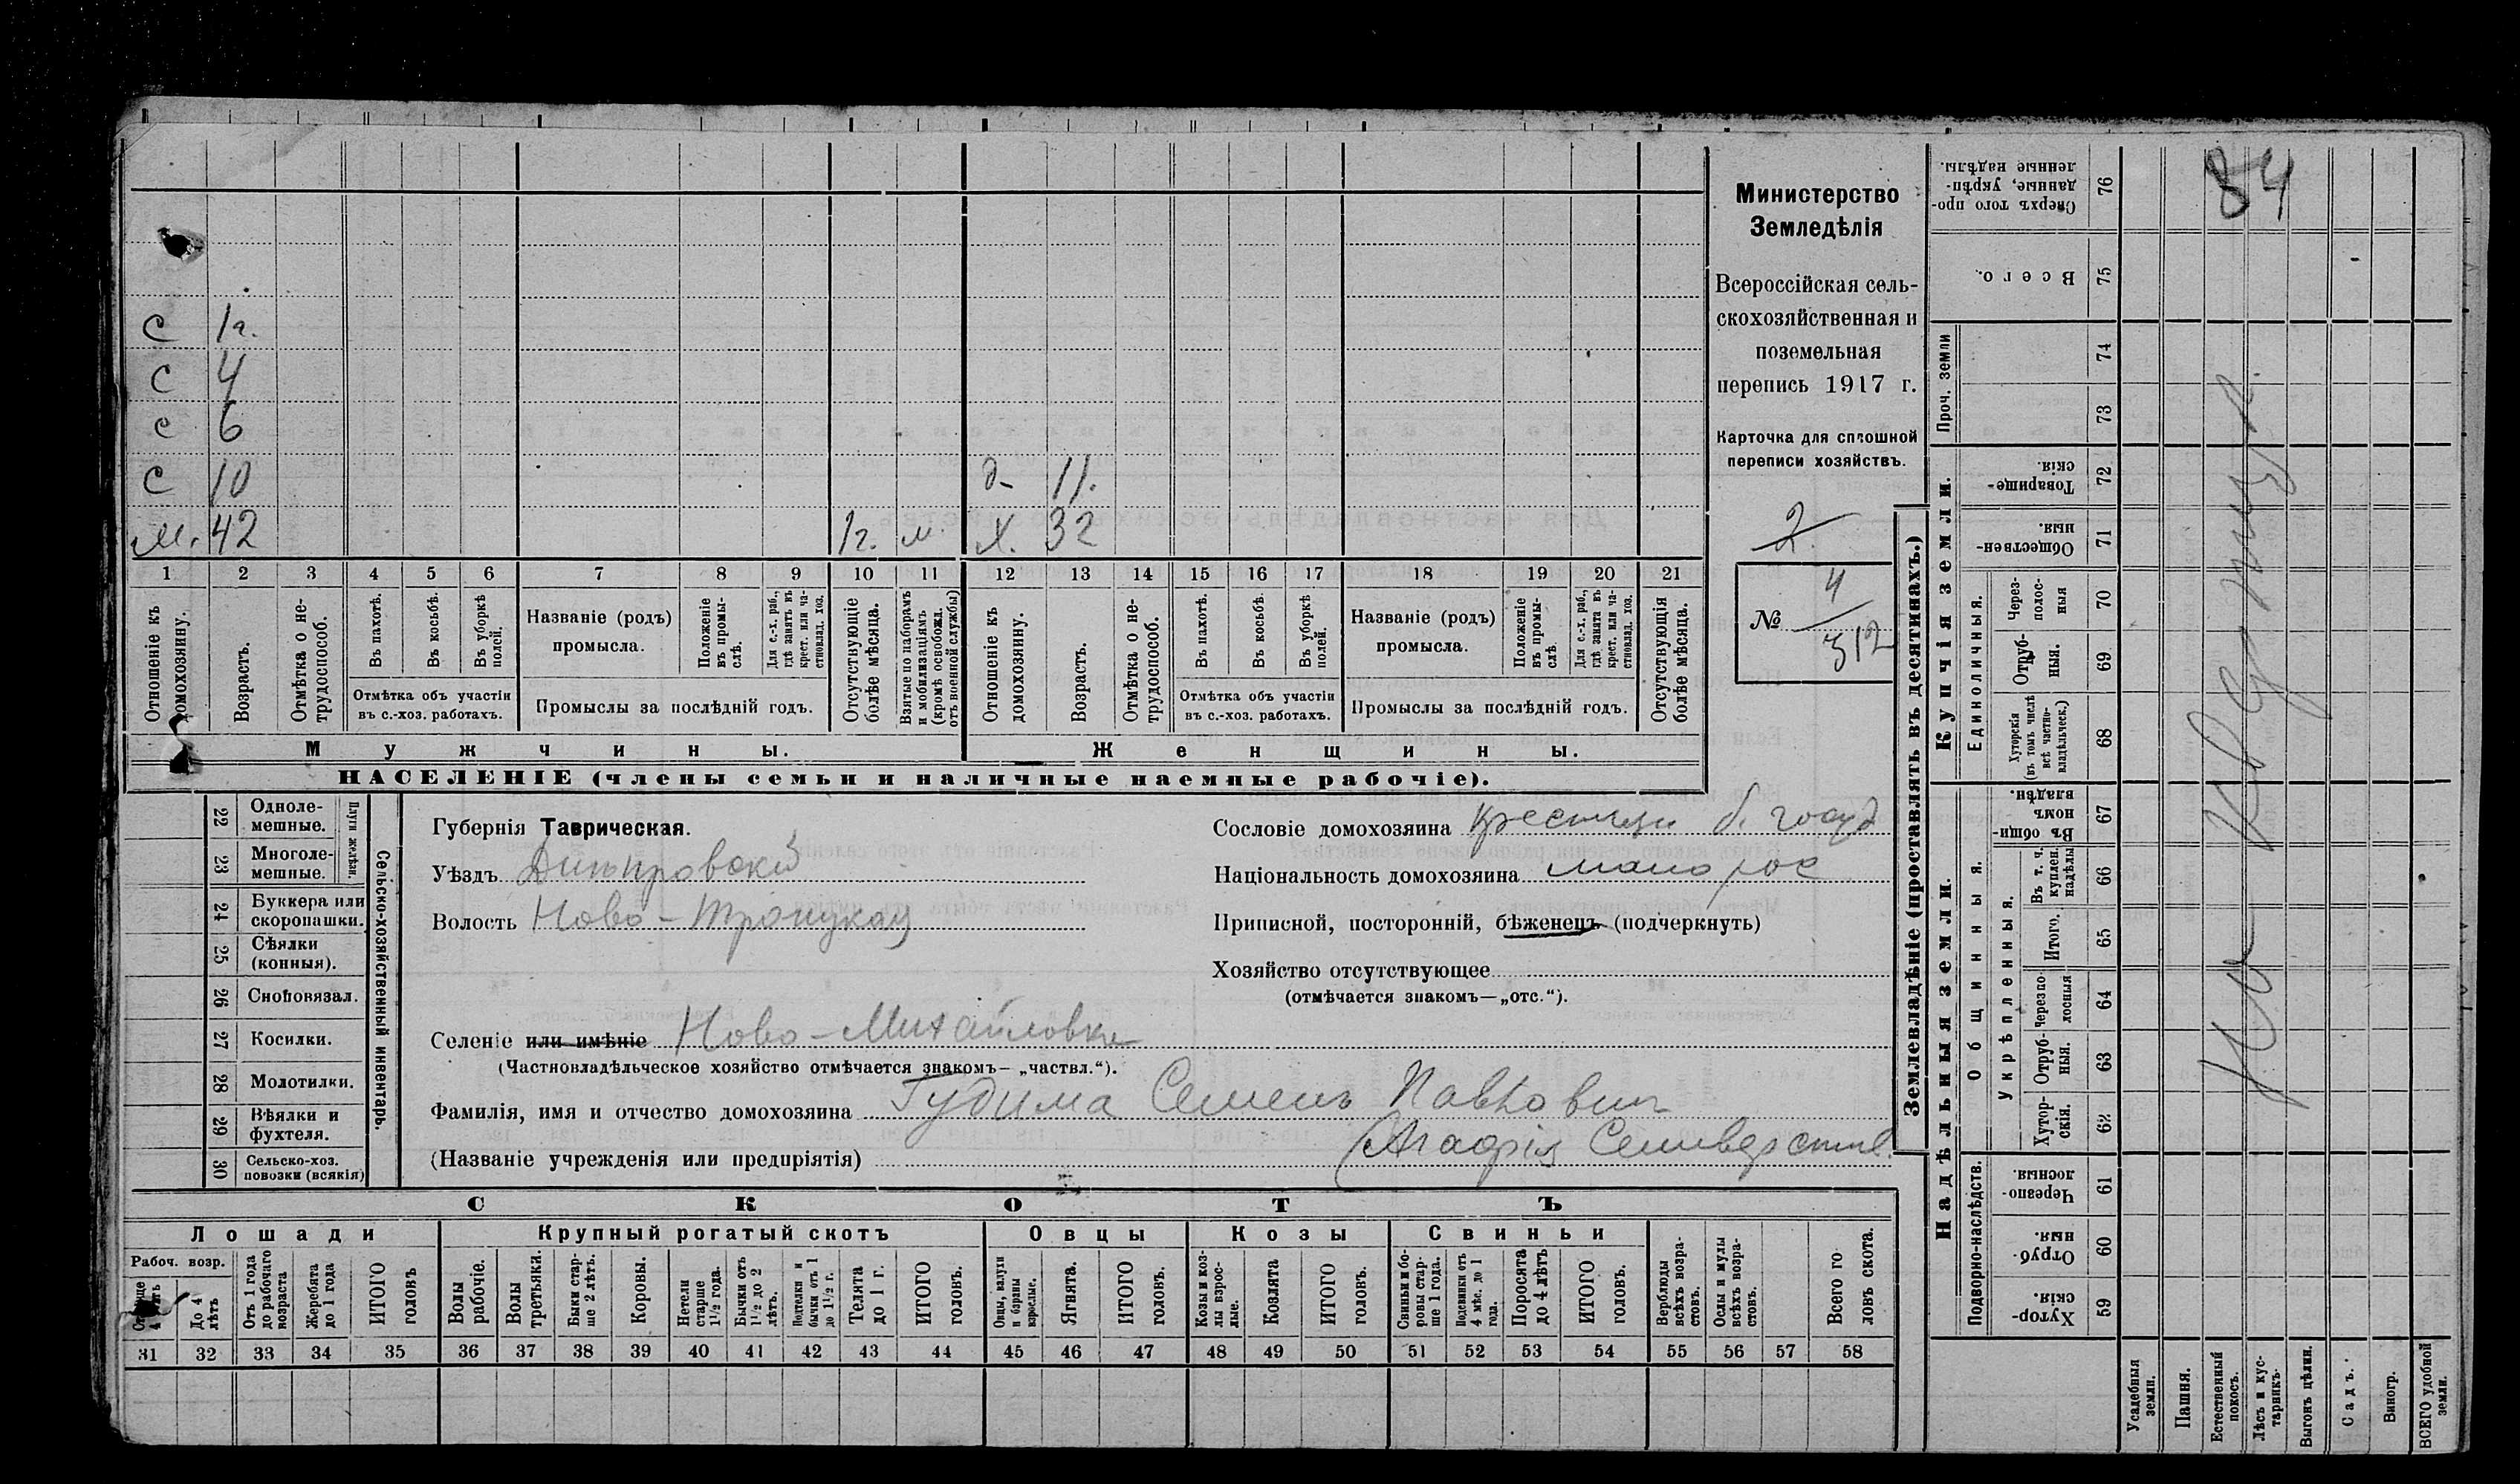 84
Министерство
Земледѣлія
Всероссійская сель-
скохозяйственная и
поземельная
перепись 1917 г.
Карточка для сплошной
переписи хозяйствъ.
2.
№ 4
312
с 1г.
с 4
с 6
с 10 д- 11.
м. 42 1г. м. х. 32
1 2 3 4 5 6 7 8 9 10 11 12 13 14 15 16 17 18 19 20 21
Отношеніе къ домохозяину.
Возрастъ.
Отмѣтка о не-трудоспособ.
Въ пахотѣ.
Въ косьбѣ.
Въ уборкѣ полей.
Отмѣтка объ участіи
въ с.-хоз. работахъ.
Названіе (родъ)
промысла.
Положеніе въ промы-слѣ.
Для с.-х. раб., гдѣ занятъ въ крест. или ча-стновлад. хоз.
Промыслы за послѣдній годъ.
Отсутствующіе болѣе мѣсяца.
Взятые по наборамъ и мобилизаціямъ (кромѣ освобожд. отъ военной службы)
Отношеніе къ домохозяину.
Возрастъ.
Отмѣтка о не-трудоспособ.
Въ пахотѣ.
Въ косьбѣ.
Въ уборкѣ полей.
Отмѣтка объ участіи
въ с.-хоз. работахъ.
Названіе (родъ)
промысла.
Положеніе въ промы-слѣ.
Для с.-х. раб., гдѣ занята въ крест. или ча-стновлад. хоз.
Промыслы за послѣдній годъ.
Отсутствующія болѣе мѣсяца.
Мужчины.
Женщины.
НАСЕЛЕНІЕ (члены семьи и наличные наемные рабочіе).
22 Одноле-мешные.
23 Многоле-мешные.
Плуги желѣзн.
24 Буккера или скоропашки.
25 Сѣялки (конныя).
26 Сноповязал.
27 Косилки.
28 Молотилки.
29 Вѣялки и фухтеля.
30 Сельско-хоз. повозки (всякія)
Сельско-хозяйственный инвентарь.
Губернія Таврическая.
Уѣздъ Днѣпровскій
Волость Ново-Троицкая
Селеніе или имѣніе Ново-Михайловка
(Частновладѣльческое хозяйство отмѣчается знакомъ— „частвл.“).
Фамилія, имя и отчество домохозяина Гудима Семенъ Павловичъ
(Названіе учрежденія или предпріятія) (Агафія Селиверств.
Сословіе домохозяина крестьян б. госуд
Національность домохозяина малорос
Приписной, посторонній, бѣженецъ (подчеркнуть)
Хозяйство отсутствующее
(отмѣчается знакомъ—„отс.“).
СКОТЪ
Лошади
Рабоч. возр.
До 4 лѣтъ
Отъ 1 года до рабочаго возраста
Жеребята до 1 года
ИТОГО головъ
Крупный рогатый скотъ
Волы рабочіе.
Волы третьяки.
Быки стар-ше 2 лѣтъ.
Коровы.
Нетели старше 1½ года.
Бычки отъ 1½ до 2 лѣтъ.
бычки отъ 1 до 1½ г.
Телята до 1 г.
ИТОГО головъ.
Овцы
Овцы, валухи и бараны взрослые.
Ягнята.
ИТОГО головъ.
Козы
Козы и коз-лы взрос-лые.
Козлята
ИТОГО головъ.
Свиньи
Свиньи и бо-ровы стар-ше 1 года.
Подсвинки отъ 4 мѣс. до 1 года.
Поросята до 4 лѣтъ
ИТОГО головъ.
Верблюды всѣхъ возра-стовъ.
Ослы и мулы всѣхъ возра-стовъ.
Всего го-ловъ скота.
31 32 33 34 35 36 37 38 39 40 41 42 43 44 45 46 47 48 49 50 51 52 53 54 55 56 57 58
Землевладѣніе (проставлять въ десятинахъ.)
Купчія земли.
Надѣльныя земли.
Сверхъ того про-данные, укрѣп-ленные надѣлы. 76
Всего. 75
Проч. земли
74
73
Товарище-скія. 72
Обществен-ныя. 71
Единоличныя.
Через-полос-ныя 70
Отруб-ныя. 69
Хуторскія (въ томъ числѣ всѣ частно-владѣльческ.) 68
Общинныя.
Въ общи-номъ владѣн. 67
Укрѣпленныя.
Въ т. ч. куплен. надѣлы 66
Итого. 65
Черезпо-лосныя 64
Отруб-ныя. 63
Хутор-скія. 62
Подворно-наслѣдств.
Черезпо-лосныя 61
Отруб-ныя. 60
Хутор-скія. 59
Усадебныя земли.
Пашня.
Естественный покосъ.
Лѣсъ и кус-тарникъ.
Выгонъ цѣлин.
Садъ.
Виногр.
ВСЕГО удобной земли.